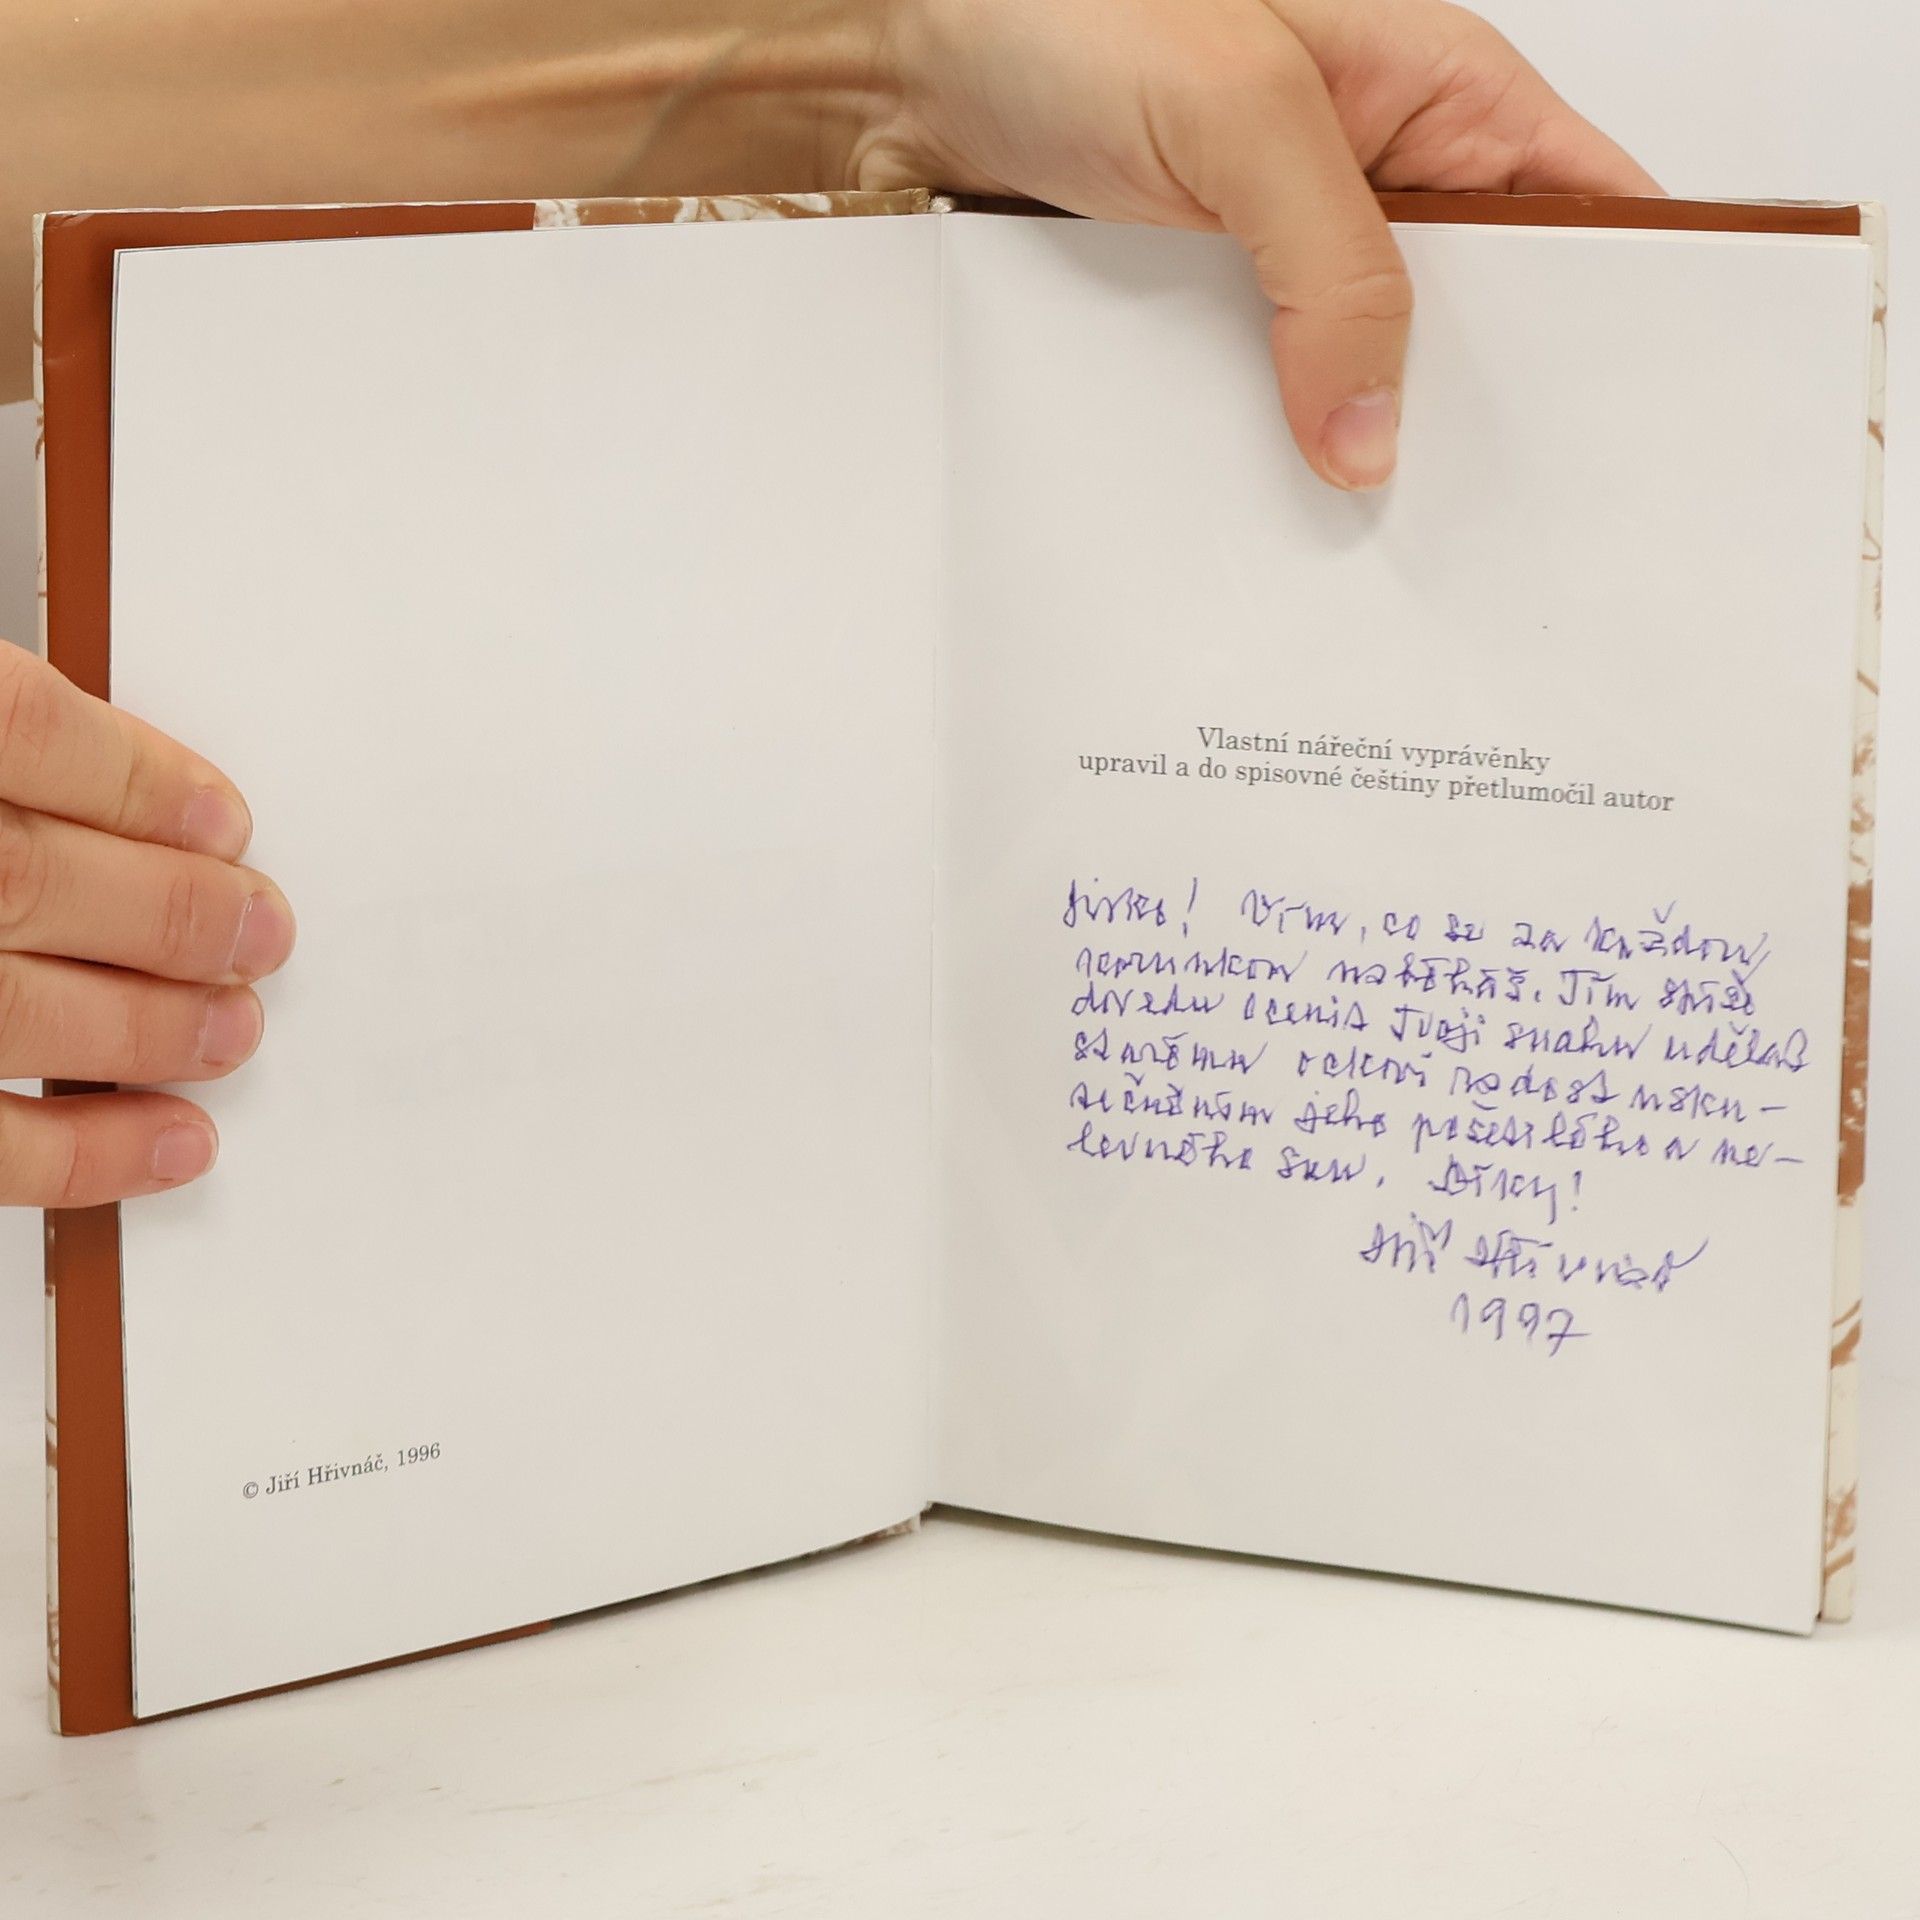 © Jiří Hřivnáč, 1996
Vlastní nářeční vyprávěnky
upravil a do spisovné češtiny přetlumočil autor
Jirko! Vím, co se za každou
korunkou naběháš. Tím spíše
dovedu ocenit Tvoji snahu udělat
starému ockovi radost usku-
tečněním jeho pošetilého a ne-
levného snu. Díky!
Jiří Hřivnáč
1997